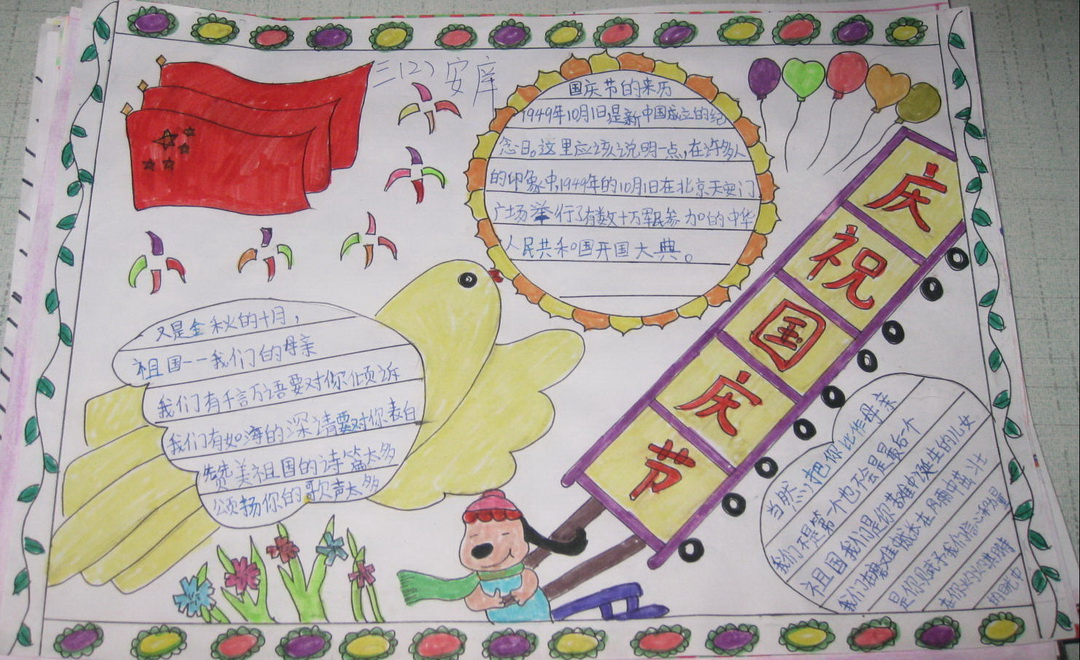 三(2) 安库
国庆节的来历
1949年10月1日是新中国成立的纪
念日。这里应该说明一点,在许多人
的印象中,1949年的10月1日在北京天安门
广场举行了有数十万军民参加的中华
人民共和国开国大典。
庆祝国庆节
又是金秋的十月,
祖国——我们的母亲
我们有千言万语要对你倾诉
我们有如海的深情要对你表白
赞美祖国的诗篇太多
颂扬你的歌声太多
当然,把你比作母亲
我们不是第一个也不会是最后一个
祖国我们是你苦难中诞生的儿女
我们由苦难成长在风雨中茁壮
是你赐予我们信心和力量